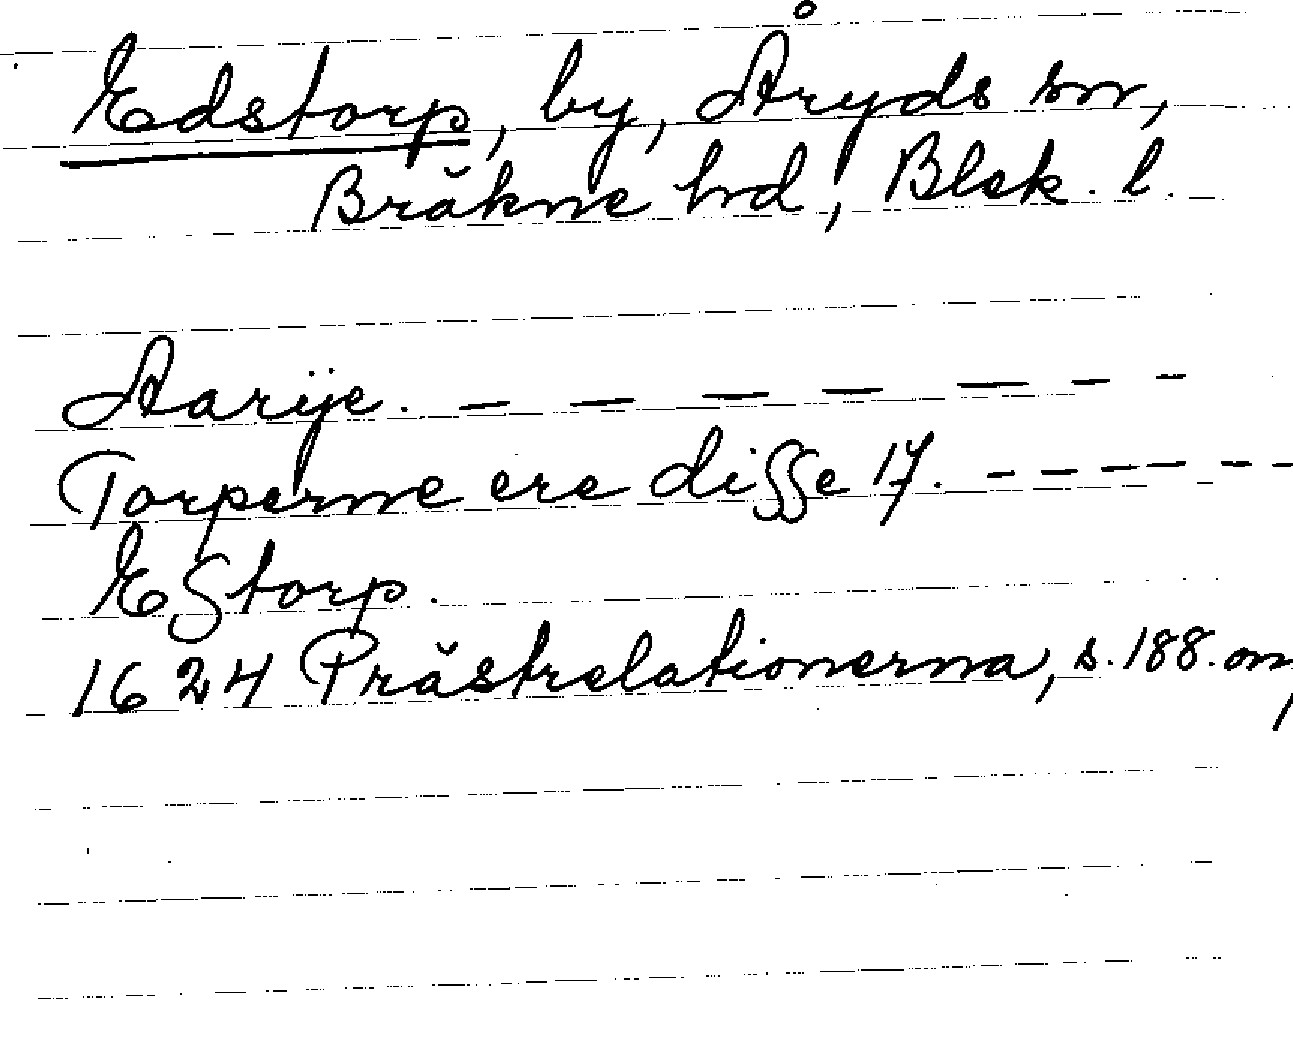 Edstorp, by, Åryds sn,
Bräkne hd, Blek. l.
Aarÿe. — — — — — — —
Torperne ere disse 17. — — — — — —
Estorp.
1624 Prästrelationerna, s. 188.